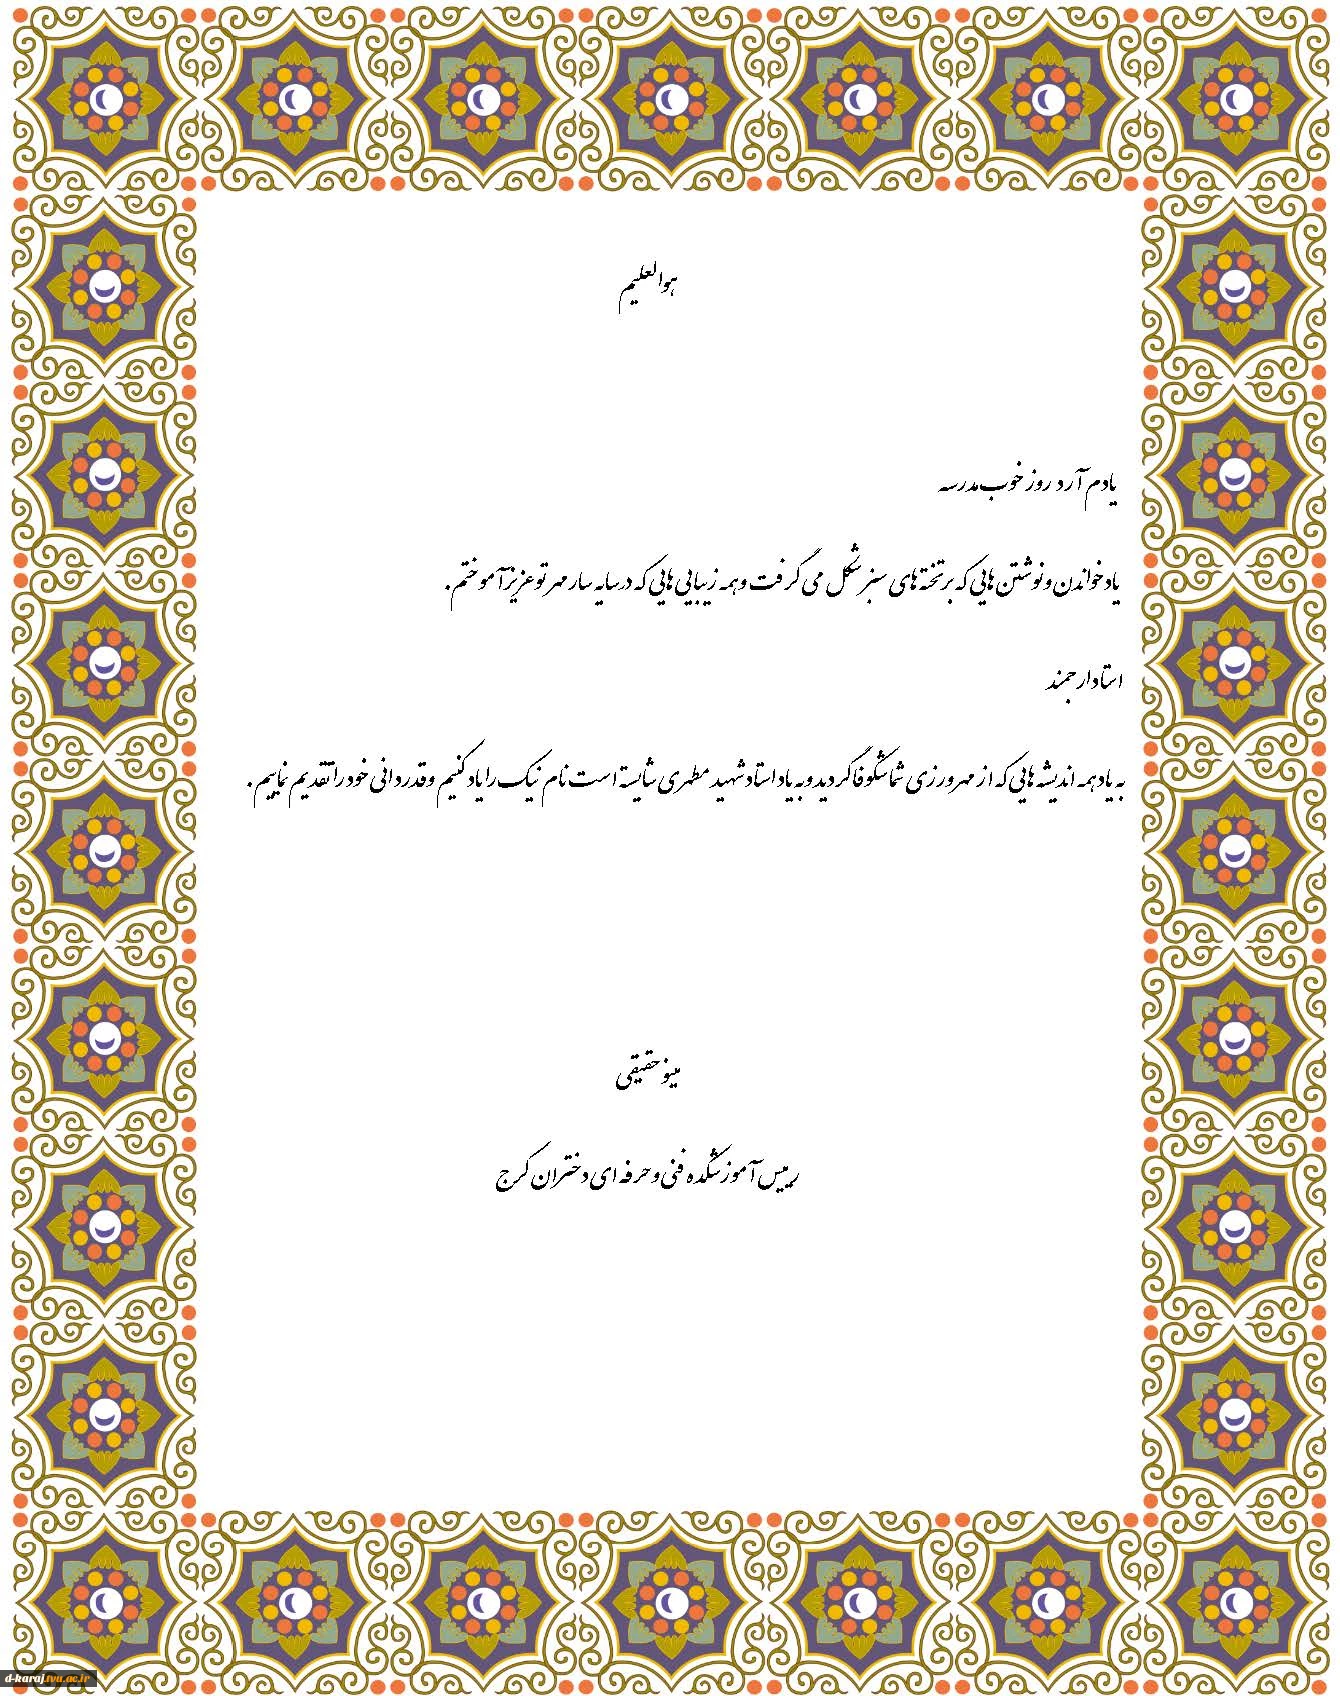 هوالعلیم
یادم آرد روز خوب مدرسه
یاد خواندن و نوشتن هایی که بر تخته های سبز شکل می گرفت و همه زیبایی هایی که در سایه سار مهر تو عزیز آموختم .
استاد ارجمند
به یاد همه اندیشه هایی که از مهرورزی شما شکوفا گردید و به یاد استاد شهید مطهری شایسته است نام نیک را یاد کنیم و قدردانی خود را تقدیم نماییم .
مینو حقیقی
رییس آموزشکده فنی و حرفه ای دختران کرج
d-karaj.tvu.ac.ir